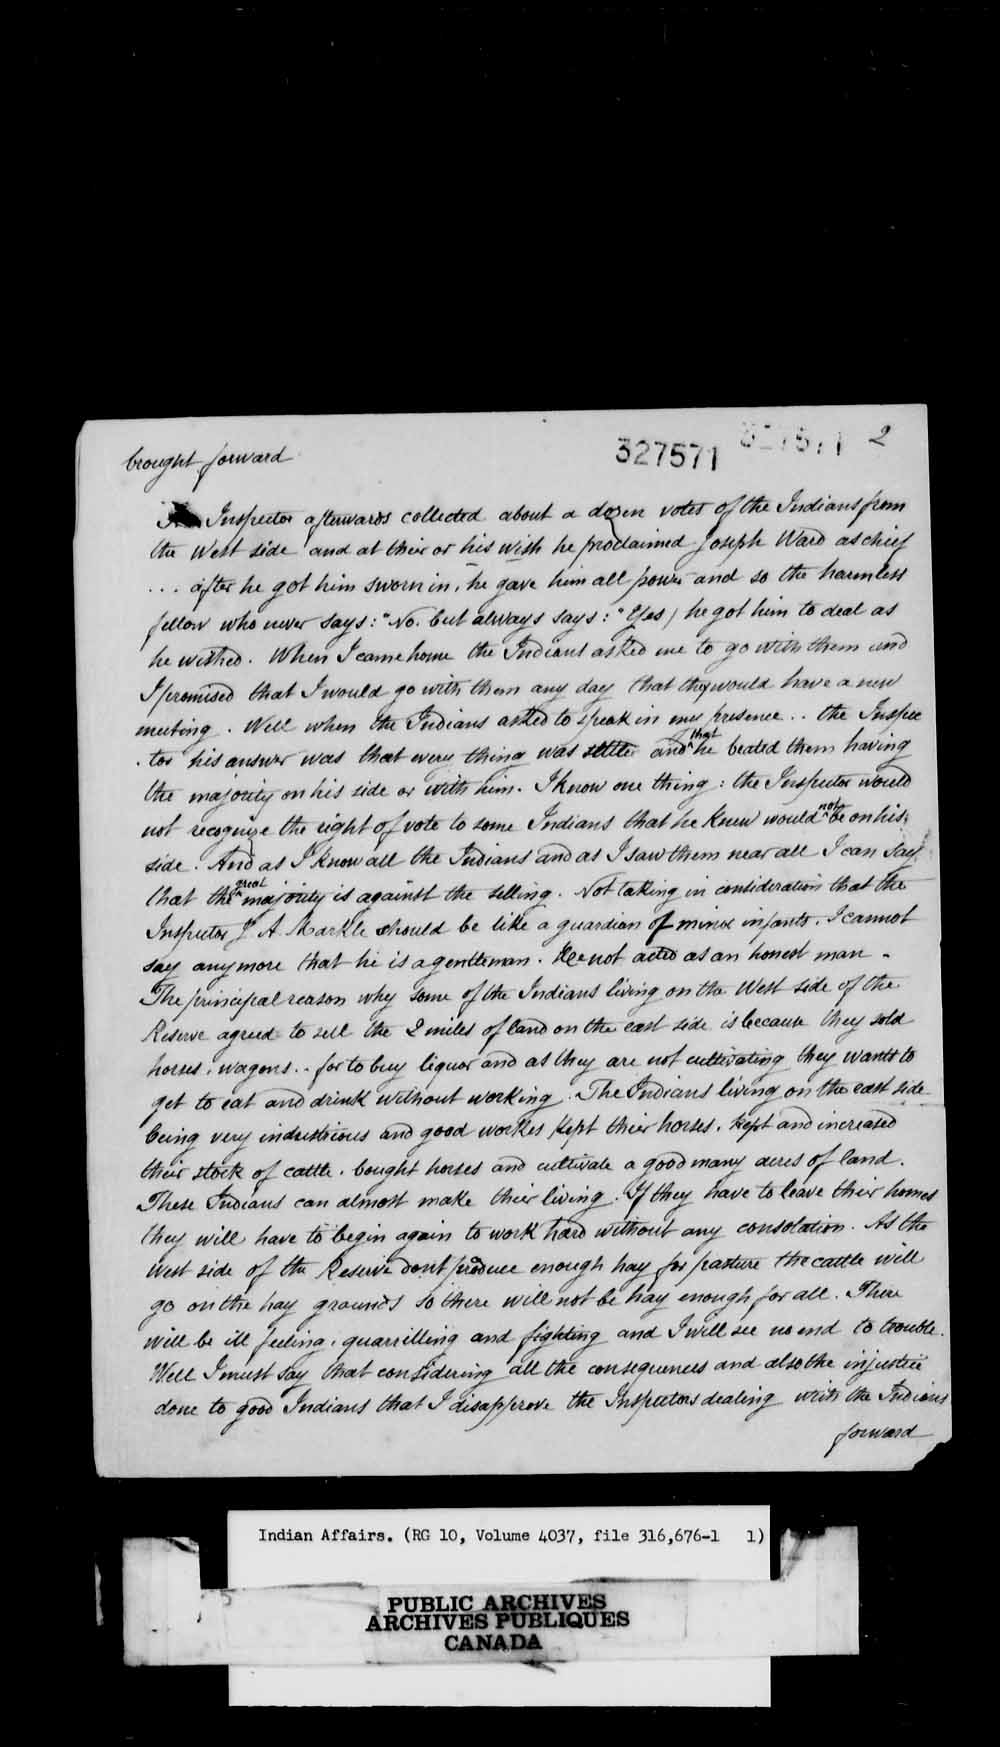 brought forward
327571
2
The Inspector afterwards collected about a dozen votes of the Indians from
the West side and at their or his wish he proclaimed Joseph Ward as chief
... after he got him sworn in, he gave him all power and so the harmless
fellow who never says: "No. but always says: "Yes) he got him to deal as
he wished. When I came home the Indians asked me to go with them and
I promised that I would go with them any day that they would have a new
meeting. Well when the Indians asked to speak in my presence .. the Inspec
. tor his answer was that every thing was settle and that he beated them having
the majority on his side or with him. I know one thing: the Inspector would
not recognize the right of vote to some Indians that he knew would not be on his
side. And as I know all the Indians and as I saw them near all I can say
that the great majority is against the selling. Not taking in consideration that the
Inspector J. A. Markle should be like a guardian of minor infants. I cannot
say anymore that he is a gentleman. He not acted as an honest man -
The principal reason why some of the Indians living on the West side of the
Reserve agreed to sell the 2 miles of land on the east side is because they sold
horses, wagons.. for to buy liquor and as they are not cultivating they wants to
get to eat and drink without working. The Indians living on the east side
being very industrious and good workers kept their horses, kept and increased
their stock of cattle, bought horses and cultivate a good many acres of land.
These Indians can almost make their living. If they have to leave their homes
they will have to begin again to work hard without any consolation. As the
West side of the Reserve dont produce enough hay for pasture the cattle will
go on the hay grounds so there will not be hay enough for all. There
will be ill feeling, quarrilling and fighting and I will see no end to trouble.
Well I must say that considering all the consequences and also the injustice
done to good Indians that I disapprove the Inspectors dealing with the Indians
forward
Indian Affairs. (RG 10, Volume 4037, file 316,676-1 1)
PUBLIC ARCHIVES
ARCHIVES PUBLIQUES
CANADA